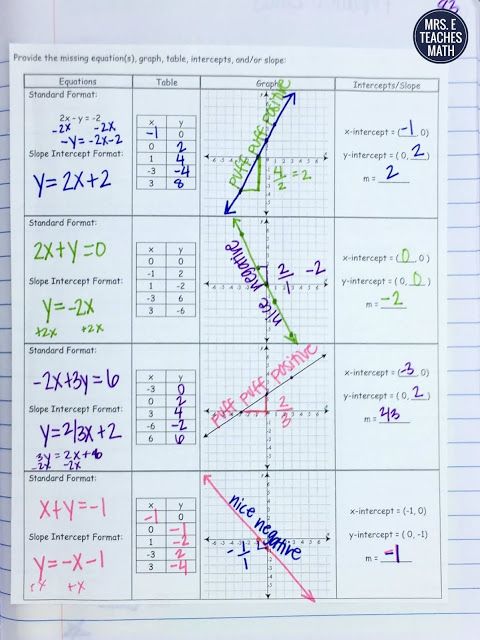 MRS. E
TEACHES
MATH
Provide the missing equation(s), graph, table, intercepts, and/or slope:
Equations Table Graph Intercepts/Slope
Standard Format:
2x - y = -2
-2x -2x
-y = -2x-2
Slope Intercept Format:
y=2x+2
x y
-1 0
0 2
1 4
-3 -4
3 8
PUFF PUFF POSITIVE
4/2 = 2
x-intercept = (-1, 0)
y-intercept = ( 0, 2)
m = 2
Standard Format:
2x+y=0
Slope Intercept Format:
y=-2x
+2x +2x
x y
0 0
-1 2
1 -2
-3 6
3 -6
nice negative
2/1 -2
x-intercept = (0, 0)
y-intercept = ( 0, 0)
m = -2
Standard Format:
-2x+3y=6
Slope Intercept Format:
y=2/3x+2
3y = 2x+6
-2x -2x
x y
-3 0
0 2
3 4
-6 -2
6 6
PUFF PUFF POSITIVE
2/3
x-intercept = (-3, 0)
y-intercept = ( 0, 2)
m = 2/3
Standard Format:
x+y=-1
Slope Intercept Format:
y=-x-1
+x +x
x y
-1 0
0 -1
1 -2
-3 2
3 -4
nice negative
-1/1
x-intercept = (-1, 0)
y-intercept = ( 0, -1)
m = -1